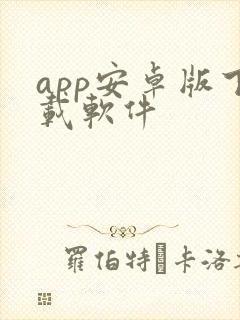 app安卓版下
載軟件
羅伯特·卡洛